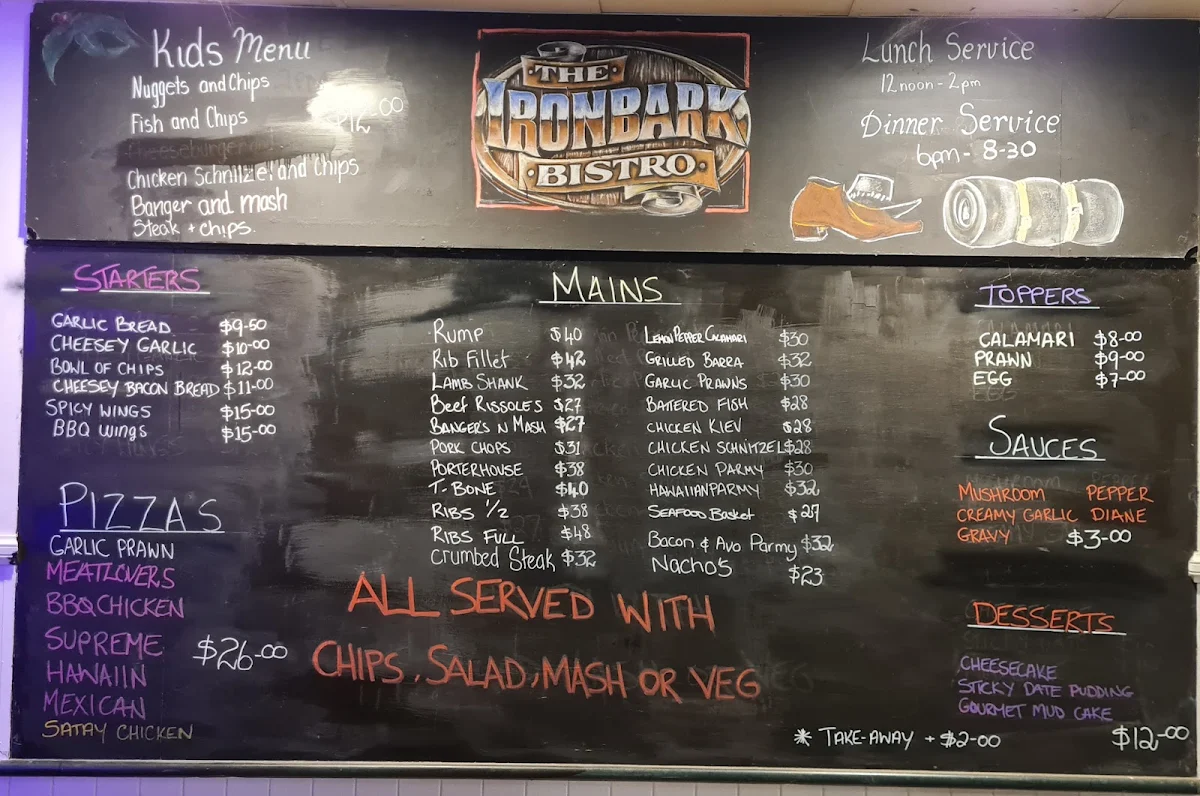 Kids Menu
Nuggets and Chips
Fish and Chips
$12-00
Cheeseburger and
Chicken Schnitzel and chips
Banger and mash
Steak + chips.
THE
IRONBARK
BISTRO
Lunch Service
12noon-2pm
Dinner Service
6pm- 8-30
STARTERS
GARLIC BREAD $9-50
CHEESEY GARLIC $10-00
BOWL OF CHIPS $12-00
CHEESEY BACON BREAD $11-00
SPICY WINGS $15-00
BBQ wings $15-00
PIZZAS
GARLIC PRAWN
MEATLOVERS
BBQ CHICKEN
SUPREME $26-00
HAWAIIN
MEXICAN
SATAY CHICKEN
MAINS
Rump $40
Rib Fillet $42
LAMB SHANK $32
Beef RISSOLES $27
BANGERS N MASH $27
PORK CHOPS $31
PORTERHOUSE $38
T-BONE $40
RIBS 1/2 $38
RIBS FULL $48
Crumbed Steak $32
LEMON PEPPER CALAMARI $30
GRILLED BARRA $32
GARLIC PRAWNS $30
BATTERED FISH $28
CHICKEN KIEV $28
CHICKEN SCHNITZEL $28
CHICKEN PARMY $30
HAWAIIAN PARMY $32
SEAFOOD BASKET $27
Bacon & Avo Parmy $32
Nachos $23
ALL SERVED WITH
CHIPS, SALAD, MASH OR VEG
TOPPERS
CALAMARI $8-00
PRAWN $9-00
EGG $7-00
SAUCES
MUSHROOM PEPPER
CREAMY GARLIC DIANE
GRAVY $3-00
DESSERTS
CHEESECAKE
STICKY DATE PUDDING
GOURMET MUD CAKE
$12-00
* TAKE-AWAY + $2-00